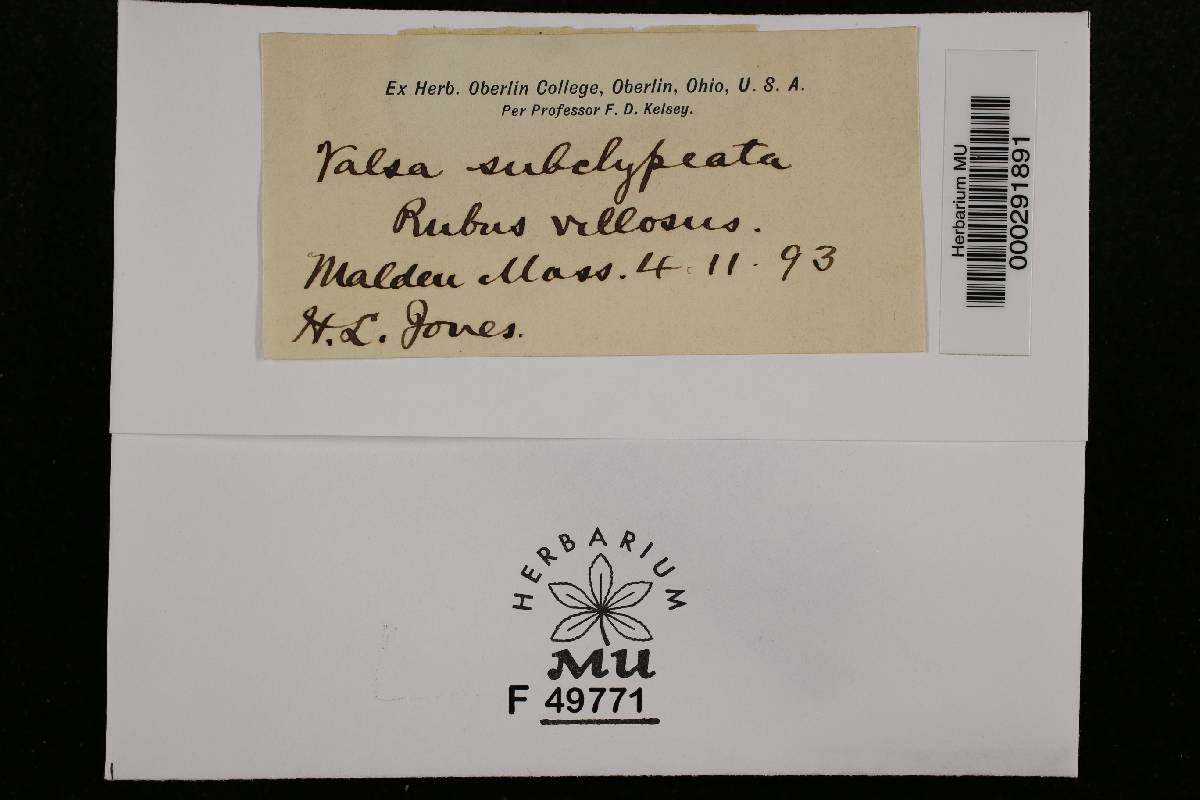 Ex Herb. Oberlin College, Oberlin, Ohio, U. S. A.
Per Professor F. D. Kelsey.
Valsa subclypeata
Rubus villosus.
Malden Mass. 4. 11. 93
H. L. Jones.
Herbarium MU
000291891
HERBARIUM
MU
F 49771